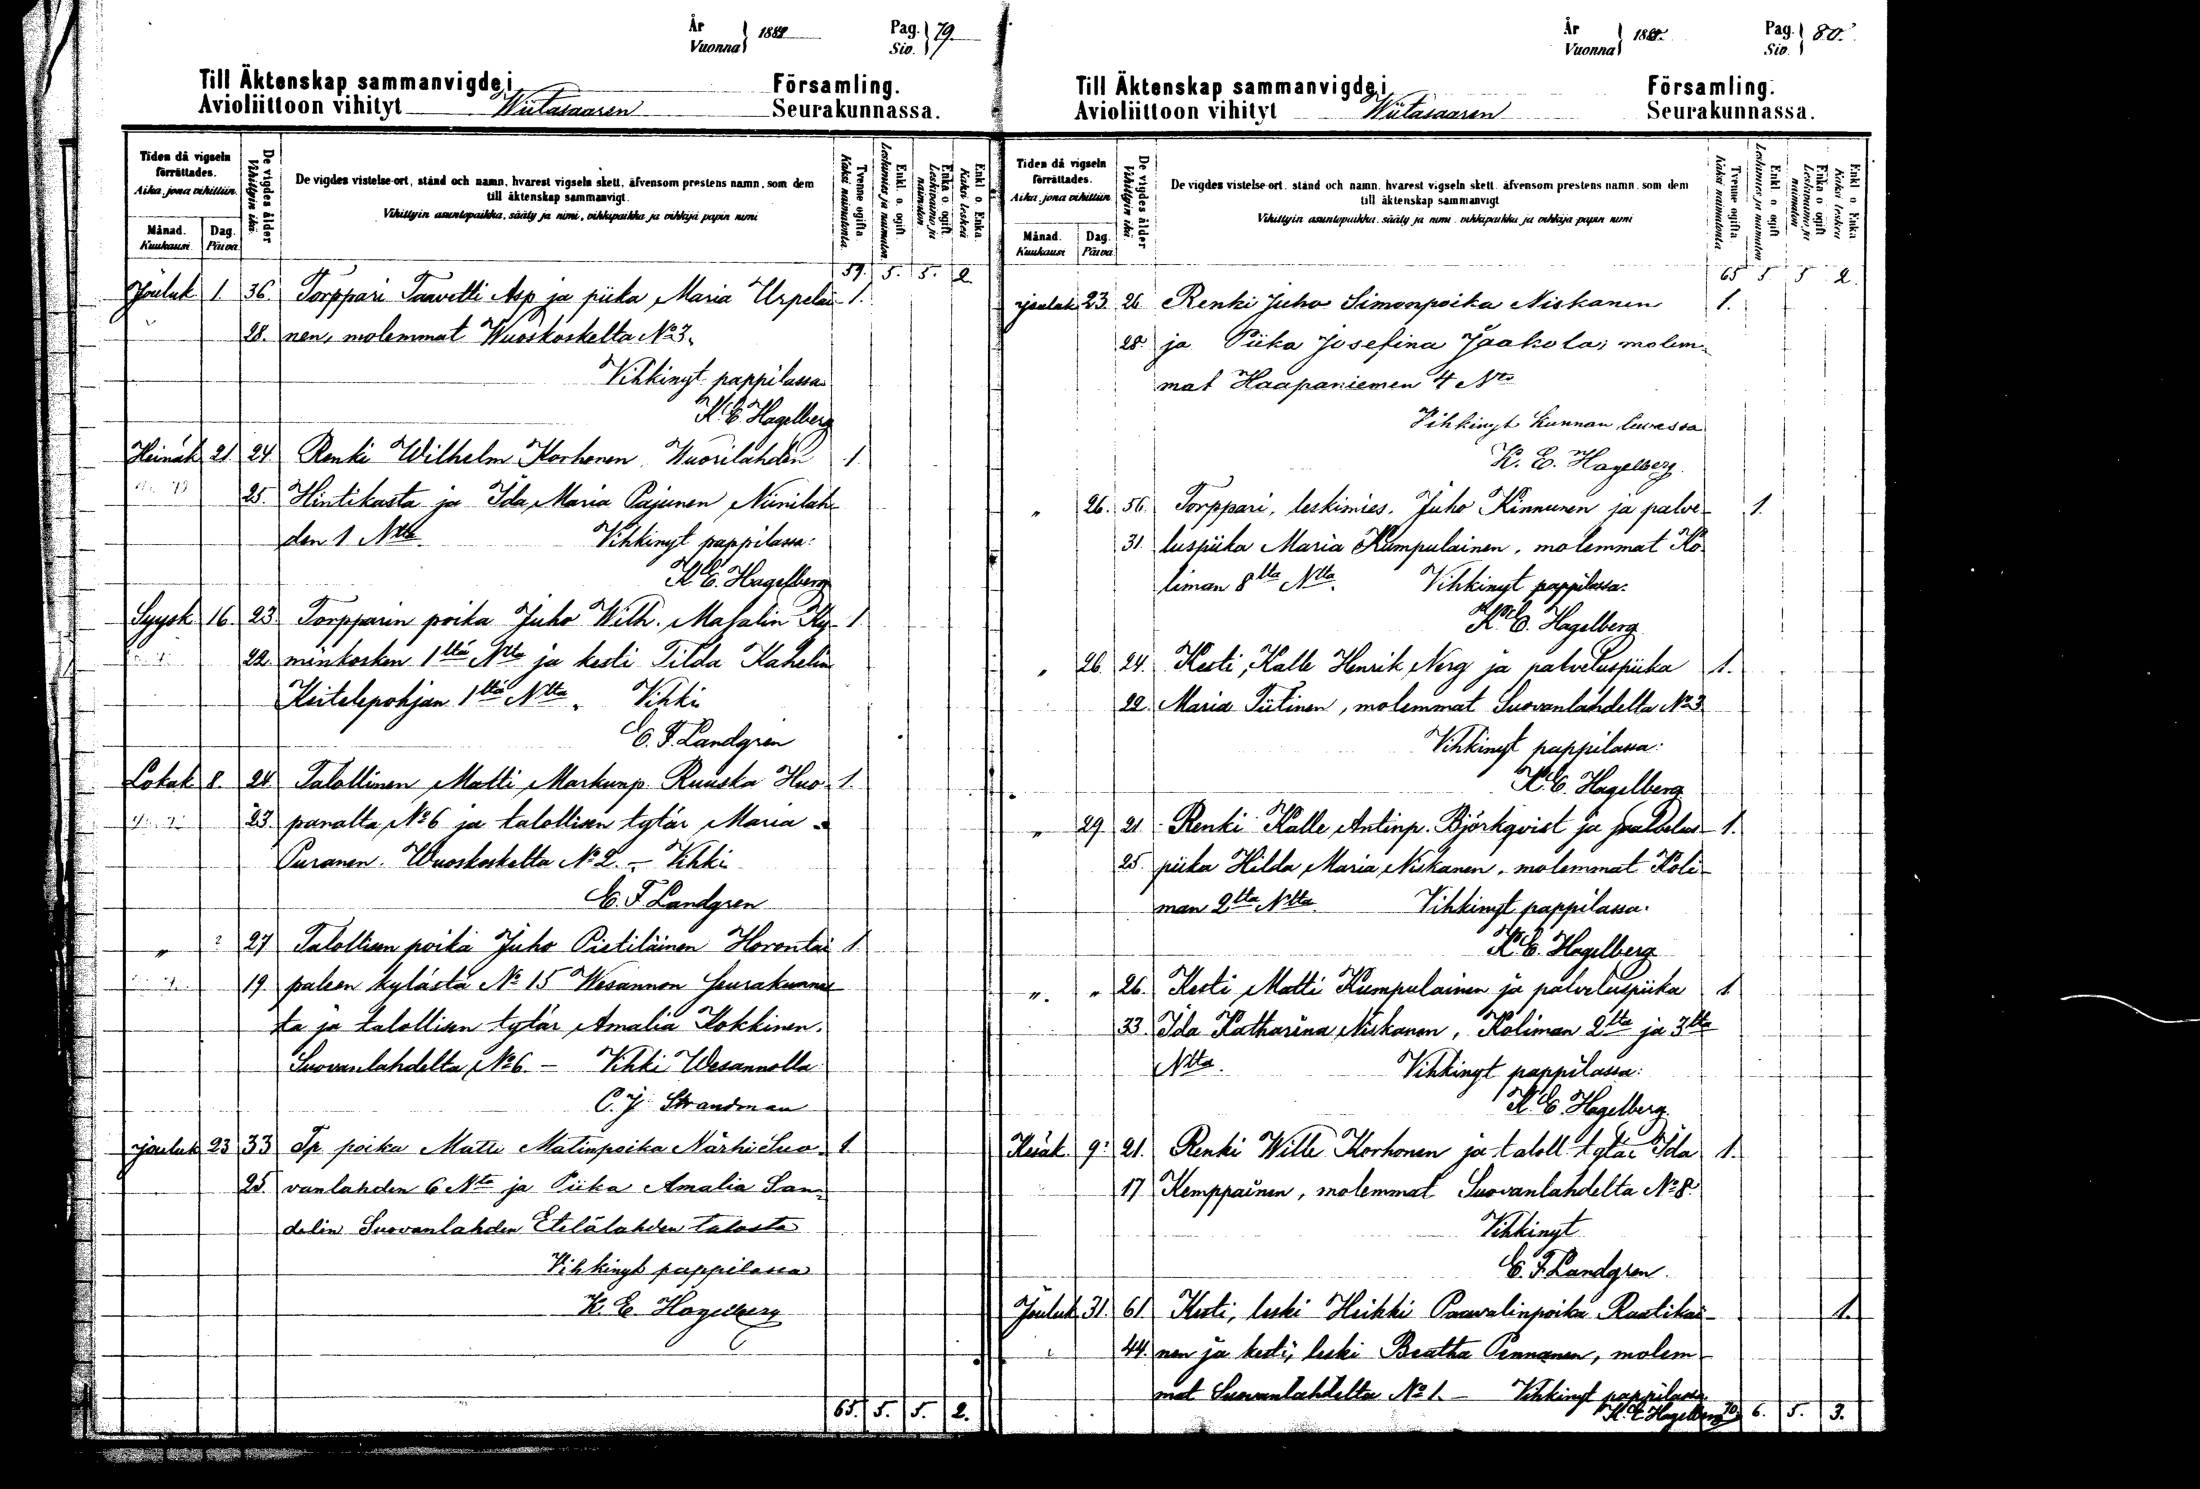 År
Vuonna } 1889
Pag.
Siv. } 79
Till Äktenskap sammanvigde i Församling.
Avioliittoon vihityt Wiitasaaren Seurakunnassa.
Tiden då vigseln förrättades.
Aika, jona vihittiin.
Månad.
Kuukausi.
Dag.
Päivä.
De vigdes ålder
Vihittyin ikä.
De vigdes vistelse-ort, stånd och namn, hvarest vigseln skett, äfvensom prestens namn, som dem
till äktenskap sammanvigt.
Vihittyin asuntopaikka, sääty ja nimi, vihkipaikka ja vihkijä papin nimi
Tvenne ogifta.
Kaksi naimatonta.
Enkl. o. ogift.
Leskimies ja naimaton
Enka o. ogift.
Leskivaimo ja naimaton
Enkl o. Enka
Kaksi leskeä
59. 5. 5. 2.
Jouluk 1. 36. Torppari Taavetti Asp ja piika Maria Urpelai- 1.
28. nen, molemmat Wuoskoskelta No 3.
Vihkinyt pappilassa
K. E. Hagelberg
Heinäk 21. 24. Renki Wilhelm Korhonen Wuorilahden 1
25. Hintikasta ja Ida Maria Pajunen Niinilah-
den 1 Nlta. Vihkinyt pappilassa:
K. E. Hagelberg
Syysk 16. 23. Torpparin poika Juho Wilh. Masalin Ky- 1
22. minkosken 1ltä Nlta ja kesti Tilda Kahelin
Keitelepohjan 1ltä Nlta. Vihki
E. F. Landgren
Lokak 8. 24. Talollinen Matti Markunp. Ruuska Huo- 1.
23. panalta No 6 ja talollisen tytär Maria
Puranen. Wuoskoskelta No 2. – Vihki
E. F Landgren
" ? 27 Talollisen poika Juho Pietiläinen Horontai 1
19. paleen kylästä No 15 Wesannon Seurakunnas
ta ja talollisen tytär Amalia Kokkinen.
Suovanlahdelta No 6. – Vihki Wesannolla
C. J. Strandman
jouluk 23 33 Tp. poika Matti Matinpoika Närhi Suo- 1.
25. vanlahden 6 Nlta ja Piika Amalia San-
delin Suovanlahden Etelälahden talosta
Vihkinyt pappilassa
K. E. Hagelberg
65. 5. 5. 2.
År
Vuonna } 188
Pag.
Siv. } 80.
Till Äktenskap sammanvigde i Församling.
Avioliittoon vihityt Wiitasaaren Seurakunnassa.
Tiden då vigseln förrättades.
Aika, jona vihittiin.
Månad.
Kuukausi
Dag.
Päivä
De vigdes ålder
Vihittyin ikä.
De vigdes vistelse-ort, stånd och namn, hvarest vigseln skett, äfvensom prestens namn, som dem
till äktenskap sammanvigt
Vihittyin asuntopaikka, sääty ja nimi, vihkipaikka ja vihkijä papin nimi
Tvenne ogifta.
Kaksi naimatonta
Enkl. o. ogift.
Leskimies ja naimaton
Enka o ogift
Leskivaimo ja naimaton
Enkl o Enka
Kaksi leskeä
65 5 5 2.
jouluk 23. 26 Renki Juho Simonpoika Niskanen 1.
28. ja Piika Josefina Jaakola, molem-
mat Haapaniemen 4 Nlta
Vihkinyt Kunnan
K. E. Hagelberg.
" 26. 56. Torppari, leskimies, Juho Kinnunen ja palve- 1.
31. luspiika Maria Kumpulainen, molemmat Ko-
liman 8lta Nlta. Vihkinyt pappilassa.
K. E. Hagelberg
" 26. 24. Kesti, Kalle Henrik Nerg ja palveluspiika 1.
22. Maria Tiitinen, molemmat Suovanlahdelta No 3
Vihkinyt pappilassa:
K. E. Hagelberg
" 29 21 Renki Kalle Antinp. Björkqvist ja palvelus- 1.
25. piika Hilda Maria Niskanen, molemmat Koli-
man 2lta Nlta. Vihkinyt pappilassa.
K. E. Hagelberg
" " 26. Kesti Matti Kumpulainen ja palveluspiika 1
33. Ida Katharina Niskanen, Koliman 2lta ja 3lta
Nlta. Vihkinyt pappilassa:
K. E. Hagelberg.
Kesäk. 9. 21. Renki Wille Korhonen ja taloll. tytär Ida 1.
17 Kemppainen, molemmat Suovanlahdelta No 8.
Vihkinyt
E. F. Landgren.
Jouluk 31. 61. Kesti, leski Heikki Paavalinpoika Raatikai- 1.
44. nen ja kesti, leski Beatha Pennanen, molem-
mat Suovanlahdelta No 1. – Vihkinyt pappilassa
K. E. Hagelberg 70. 6. 5. 3.